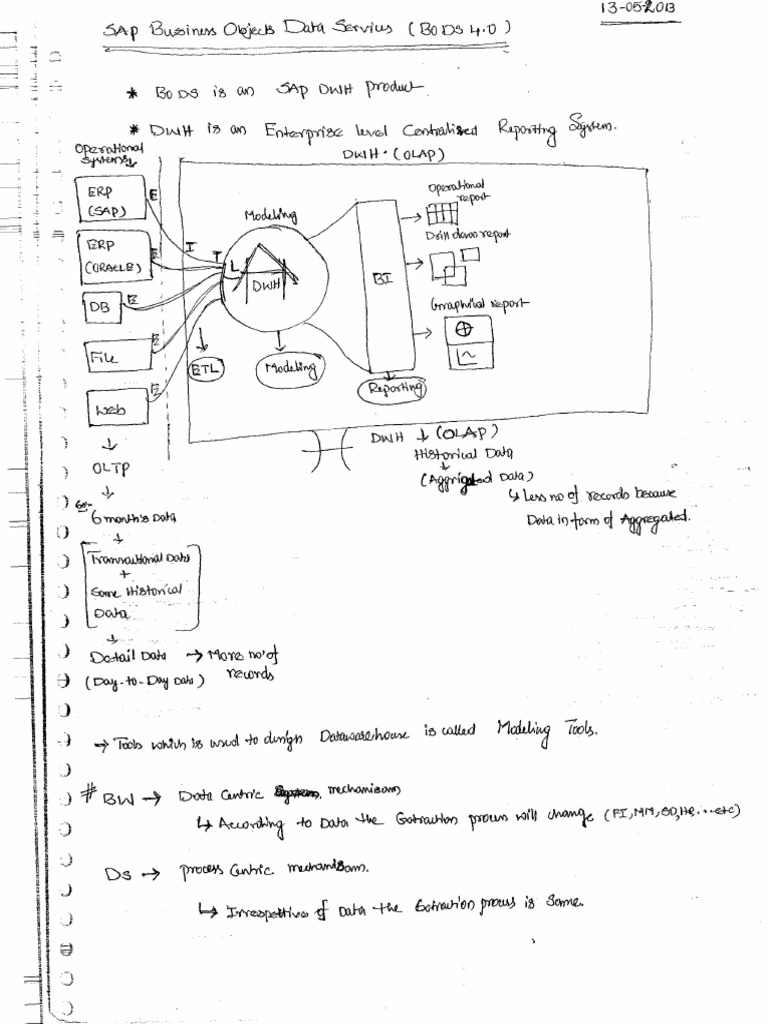 13-05-2013
SAP Business Objects Data Services (BODS 4.0)
* BODS is an SAP DWH product
* DWH is an Enterprise level Centralised Reporting System.
Operational
Systems
DWH. (OLAP)
ERP
(SAP)
E
ERP
(ORACLE)
E
DB
E
File
E
Web
E
I
T
L
Modeling
DWH
BI
Operational
report
Drill down report
Graphical report
ETL
Modeling
Reporting
OLTP
6 month's Data
Transactional Data
+
Some Historical
Data
Detail Data → More no' of
(Day-to-Day Data) records
DWH ↓ (OLAP)
Historical Data
(Aggrigated Data)
↳ Less no of records because
Data in form of Aggregated.
→ Tools which is used to design Datawarehouse is called Modeling Tools.
# BW → Data Centric mechanisam
↳ According to Data the Extraction process will change (FI, MM, SD, HR, ...etc)
DS → process Centric mechanisam.
↳ Irrespective of Data the Extraction process is Same.